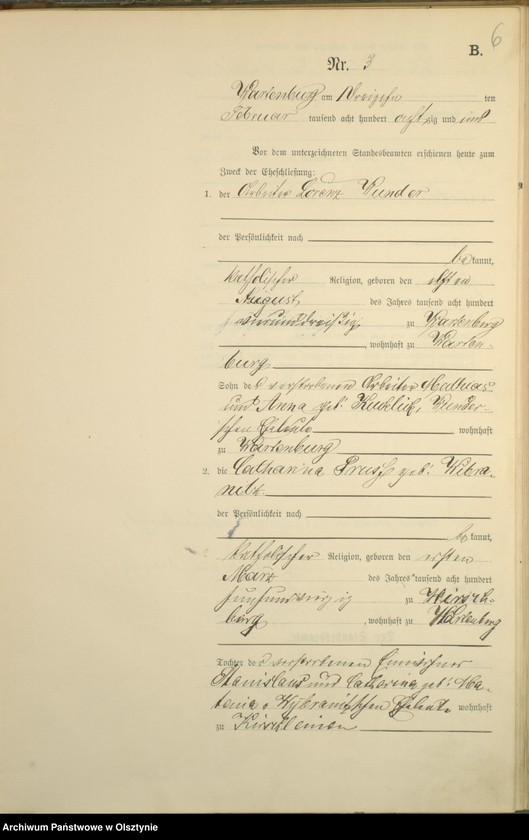 6
B.
Nr. 3
Wartenburg am Dreizehn ten
Februar tausend acht hundert achtzig und
Vor dem unterzeichneten Standesbeamten erschienen heute zum
Zweck der Eheschließung:
1. der Arbeiter Lorenz Wunder
der Persönlichkeit nach
bekannt,
katholischer Religion, geboren den elften
August des Jahres tausend acht hundert
zu Wartenburg
, wohnhaft zu Warten-
burg
Sohn des verstorbenen Arbeiter Mathias
und Anna geb. Kucklick, Wunder-
schen Eheleute wohnhaft
zu Wartenburg
2. die Catharina Preuss geb.
der Persönlichkeit nach
bekannt,
katholischer Religion, geboren den ersten
März des Jahres tausend acht hundert
fünfundvierzig zu Hirsch-
berg, wohnhaft zu Wartenburg
Tochter der verstorbenen
Stanislaus und Catharina geb.
Eheleute wohnhaft
zu
Archiwum Państwowe w Olsztynie